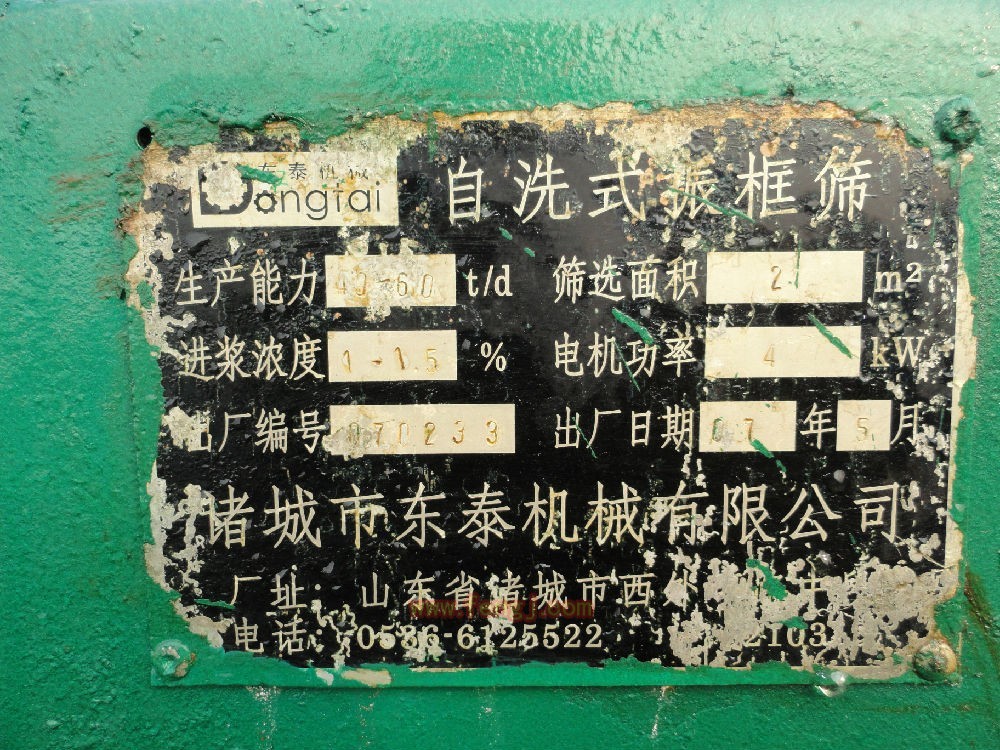 东泰机械
Dongtai
自洗式振框筛
生产能力 40-60 t/d 筛选面积 2 m²
进浆浓度 1-1.5 % 电机功率 4 kW
出厂编号 070233 出厂日期 07 年 5 月
诸城市东泰机械有限公司
厂址: 山东省诸城市西外
电话: 0536-6125522 2103